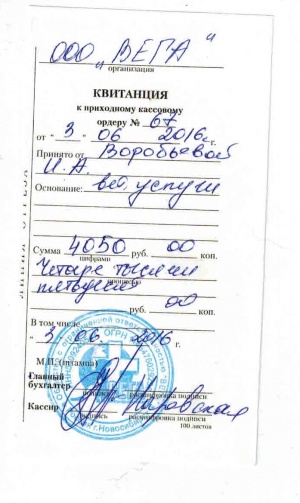 ООО "ВЕГА"
организация
КВИТАНЦИЯ
к приходному кассовому
ордеру № 67
от "3" 06 2016г.
Принято от Воробьевой
И.А.
Основание: вет. услуги
Сумма 4050 руб. 00 коп.
цифрами
Четыре тысячи
пятьдесят
прописью
руб. 00 коп.
В том числе
"3" 06 2016 г.
М.П. (штампа)
Главный
бухгалтер
подпись расшифровка подписи
Кассир
подпись расшифровка подписи
100 листов
ЛИНИЯ ОТРЕЗА